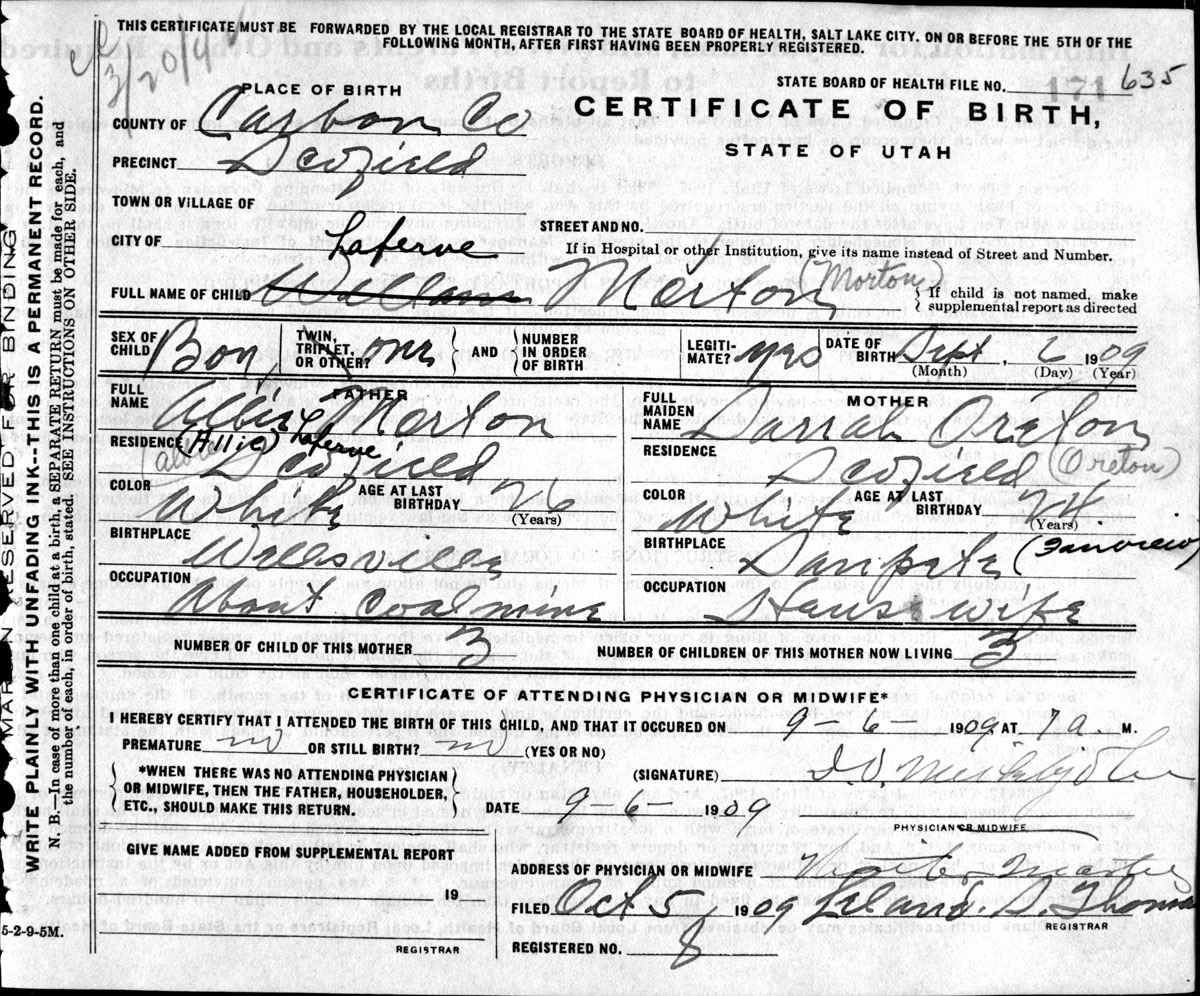 THIS CERTIFICATE MUST BE FORWARDED BY THE LOCAL REGISTRAR TO THE STATE BOARD OF HEALTH, SALT LAKE CITY. ON OR BEFORE THE 5TH OF THE
FOLLOWING MONTH, AFTER FIRST HAVING BEEN PROPERLY REGISTERED.
STATE BOARD OF HEALTH FILE NO. 635
171
PLACE OF BIRTH
CERTIFICATE OF BIRTH,
STATE OF UTAH
COUNTY OF Carbon Co
PRECINCT Scofield
TOWN OR VILLAGE OF
STREET AND NO.
CITY OF
If in Hospital or other Institution, give its name instead of Street and Number.
Laferve
FULL NAME OF CHILD Wallace Merton (Morton) } If child is not named, make
supplemental report as directed
SEX OF CHILD Boy
TWIN, TRIPLET, OR OTHER? one { AND } NUMBER IN ORDER OF BIRTH
LEGITIMATE? yes
DATE OF BIRTH Sept, 6 1909
(Month) (Day) (Year)
FATHER
FULL NAME Merton
(Allie) Laferve
RESIDENCE Scofield
COLOR White
AGE AT LAST BIRTHDAY 26
(Years)
BIRTHPLACE Wellsville
OCCUPATION About Coal mine
MOTHER
FULL MAIDEN NAME Sarrah Oreton
(Oreton)
RESIDENCE Scofield
COLOR White
AGE AT LAST BIRTHDAY 24.
(Years)
BIRTHPLACE Sanpete (Fanview)
OCCUPATION Housewife
NUMBER OF CHILD OF THIS MOTHER 3
NUMBER OF CHILDREN OF THIS MOTHER NOW LIVING 3
CERTIFICATE OF ATTENDING PHYSICIAN OR MIDWIFE*
I HEREBY CERTIFY THAT I ATTENDED THE BIRTH OF THIS CHILD, AND THAT IT OCCURRED ON 9-6- 1909 AT 7 a. M.
PREMATURE no OR STILL BIRTH? no (YES OR NO)
{ *WHEN THERE WAS NO ATTENDING PHYSICIAN
OR MIDWIFE, THEN THE FATHER, HOUSEHOLDER,
ETC., SHOULD MAKE THIS RETURN. }
(SIGNATURE)
DATE 9-6- 1909
PHYSICIAN OR MIDWIFE
GIVE NAME ADDED FROM SUPPLEMENTAL REPORT
19
REGISTRAR
ADDRESS OF PHYSICIAN OR MIDWIFE Winter Quarters
FILED Oct 5 1909 Leland. S. Thomas
REGISTRAR
REGISTERED NO. 8
5-2-9-5M.
MARGIN RESERVED FOR BINDING
WRITE PLAINLY WITH UNFADING INK--THIS IS A PERMANENT RECORD.
N. B.—In case of more than one child at a birth, a SEPARATE RETURN must be made for each, and
the number of each, in order of birth, stated. SEE INSTRUCTIONS ON OTHER SIDE.